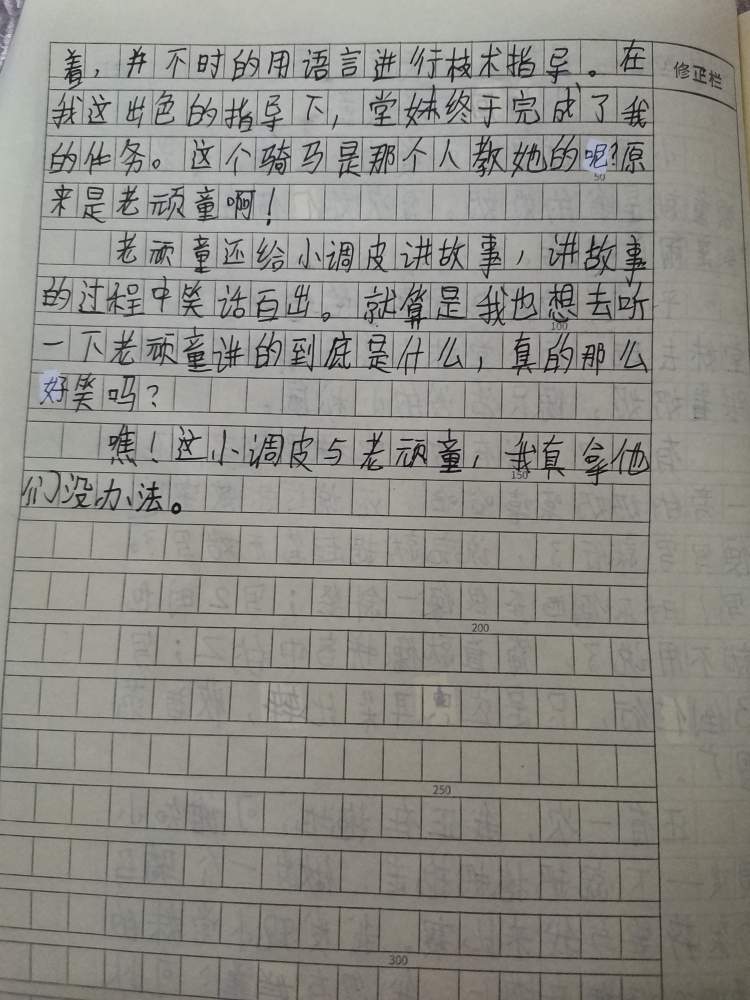 修正栏
着，并不时的用语言进行技术指导。在
我这出色的指导下，堂妹终于完成了我
的任务。这个骑马是那个人教她的呢？原
50
来是老顽童啊！
老顽童还给小调皮讲故事，讲故事
的过程中笑话百出。就算是我也想去听
100
一下老顽童讲的到底是什么，真的那么
好笑吗？
瞧！这小调皮与老顽童，我真拿他
150
们没办法。
200
250
300